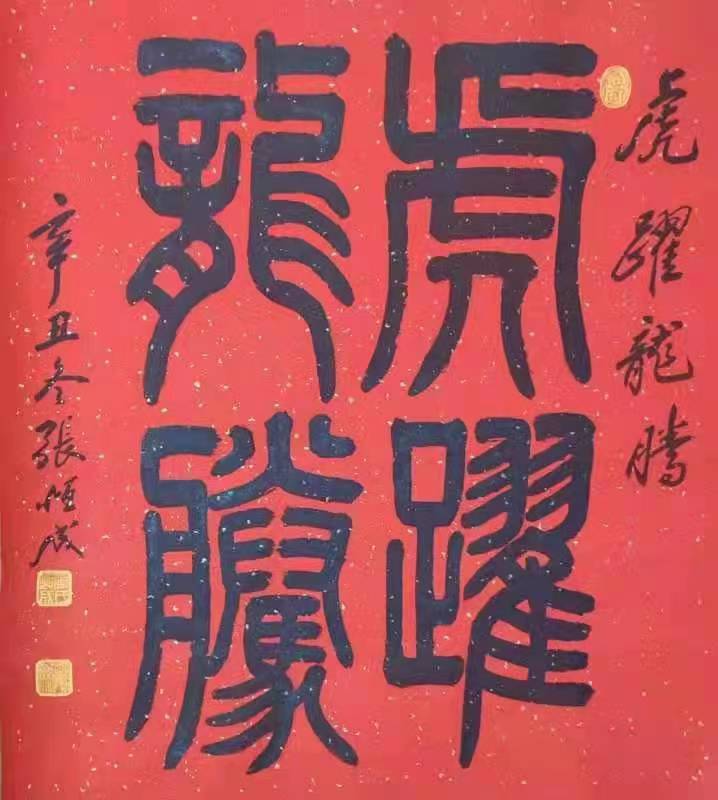 虎躍龍騰
虎躍
龍騰
辛丑冬張恒成